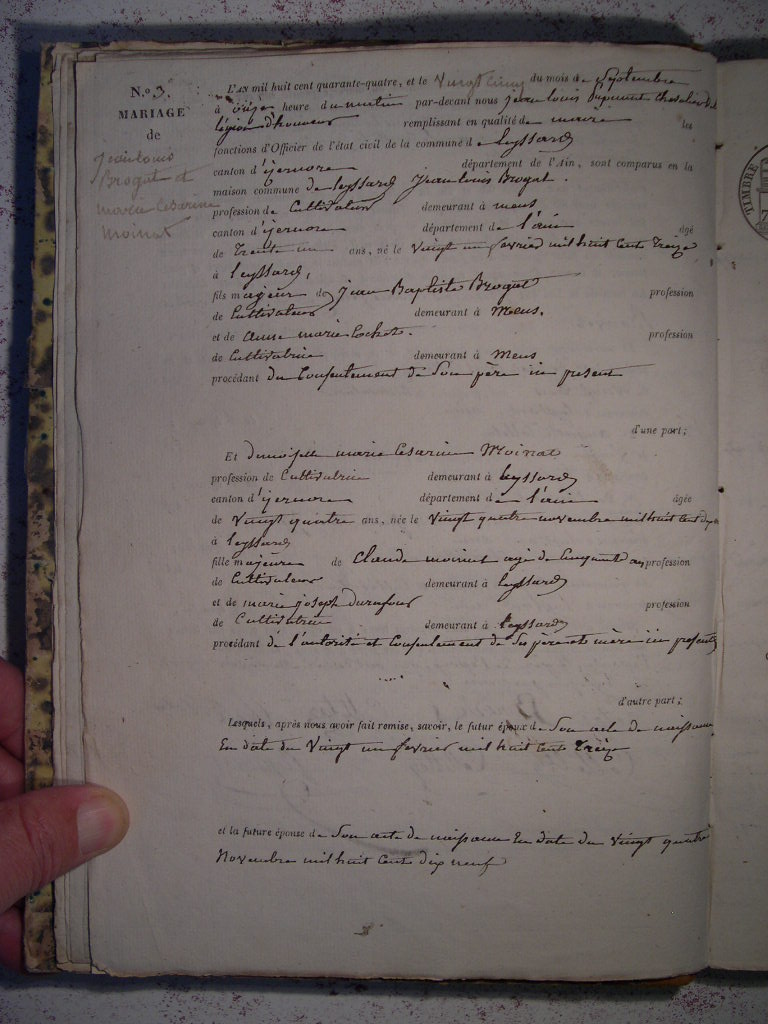 N.o 3.
MARIAGE
de
Jean louis
Brogat et
marie Cesarine
Moinat
L'AN mil huit cent quarante-quatre, et le vingt cinq du mois de Septembre
à onze heure du matin par-devant nous jean louis chevalier de la
légion d'honneur remplissant en qualité de maire les
fonctions d'Officier de l'état civil de la commune de leyssard
canton d'izernore département de l'Ain, sont comparus en la
maison commune de leyssard Jean louis Brogat.
profession de Cultivateur demeurant à mens
canton d'izernore département de l'ain âgé
de Trente un ans, né le vingt un fevrier mil huit cent treize
à leyssard,
fils majeur de jean Baptiste Brogat profession
de Cultivateur demeurant à Mens.
et de anne marie profession
de Cultivatrice demeurant à Mens
procédant du Consentement de Son père ici present
d'une part;
Et demoiselle marie Cesarine Moinat
profession de Cultivatrice demeurant à leyssard
canton d'izernore département de l'ain âgée
de vingt quatre ans, née le vingt quatre novembre mil huit cent dix neuf
à leyssard
fille majeure de Claude moinat agé de Cinquante ans profession
de Cultivateur demeurant à leyssard
et de marie joseph durafour profession
de Cultivatrice demeurant à leyssard
procédant de l'autorité et Consentement de Ses père et mère ici presents
d'autre part;
Lesquels, après nous avoir fait remise, savoir, le futur époux de Son acte de naissance
En date du Vingt un fevrier mil huit Cent Treize
et la future épouse de Son acte de naissance En date du vingt quatre
Novembre mil huit Cent dix neuf
TIMBRE